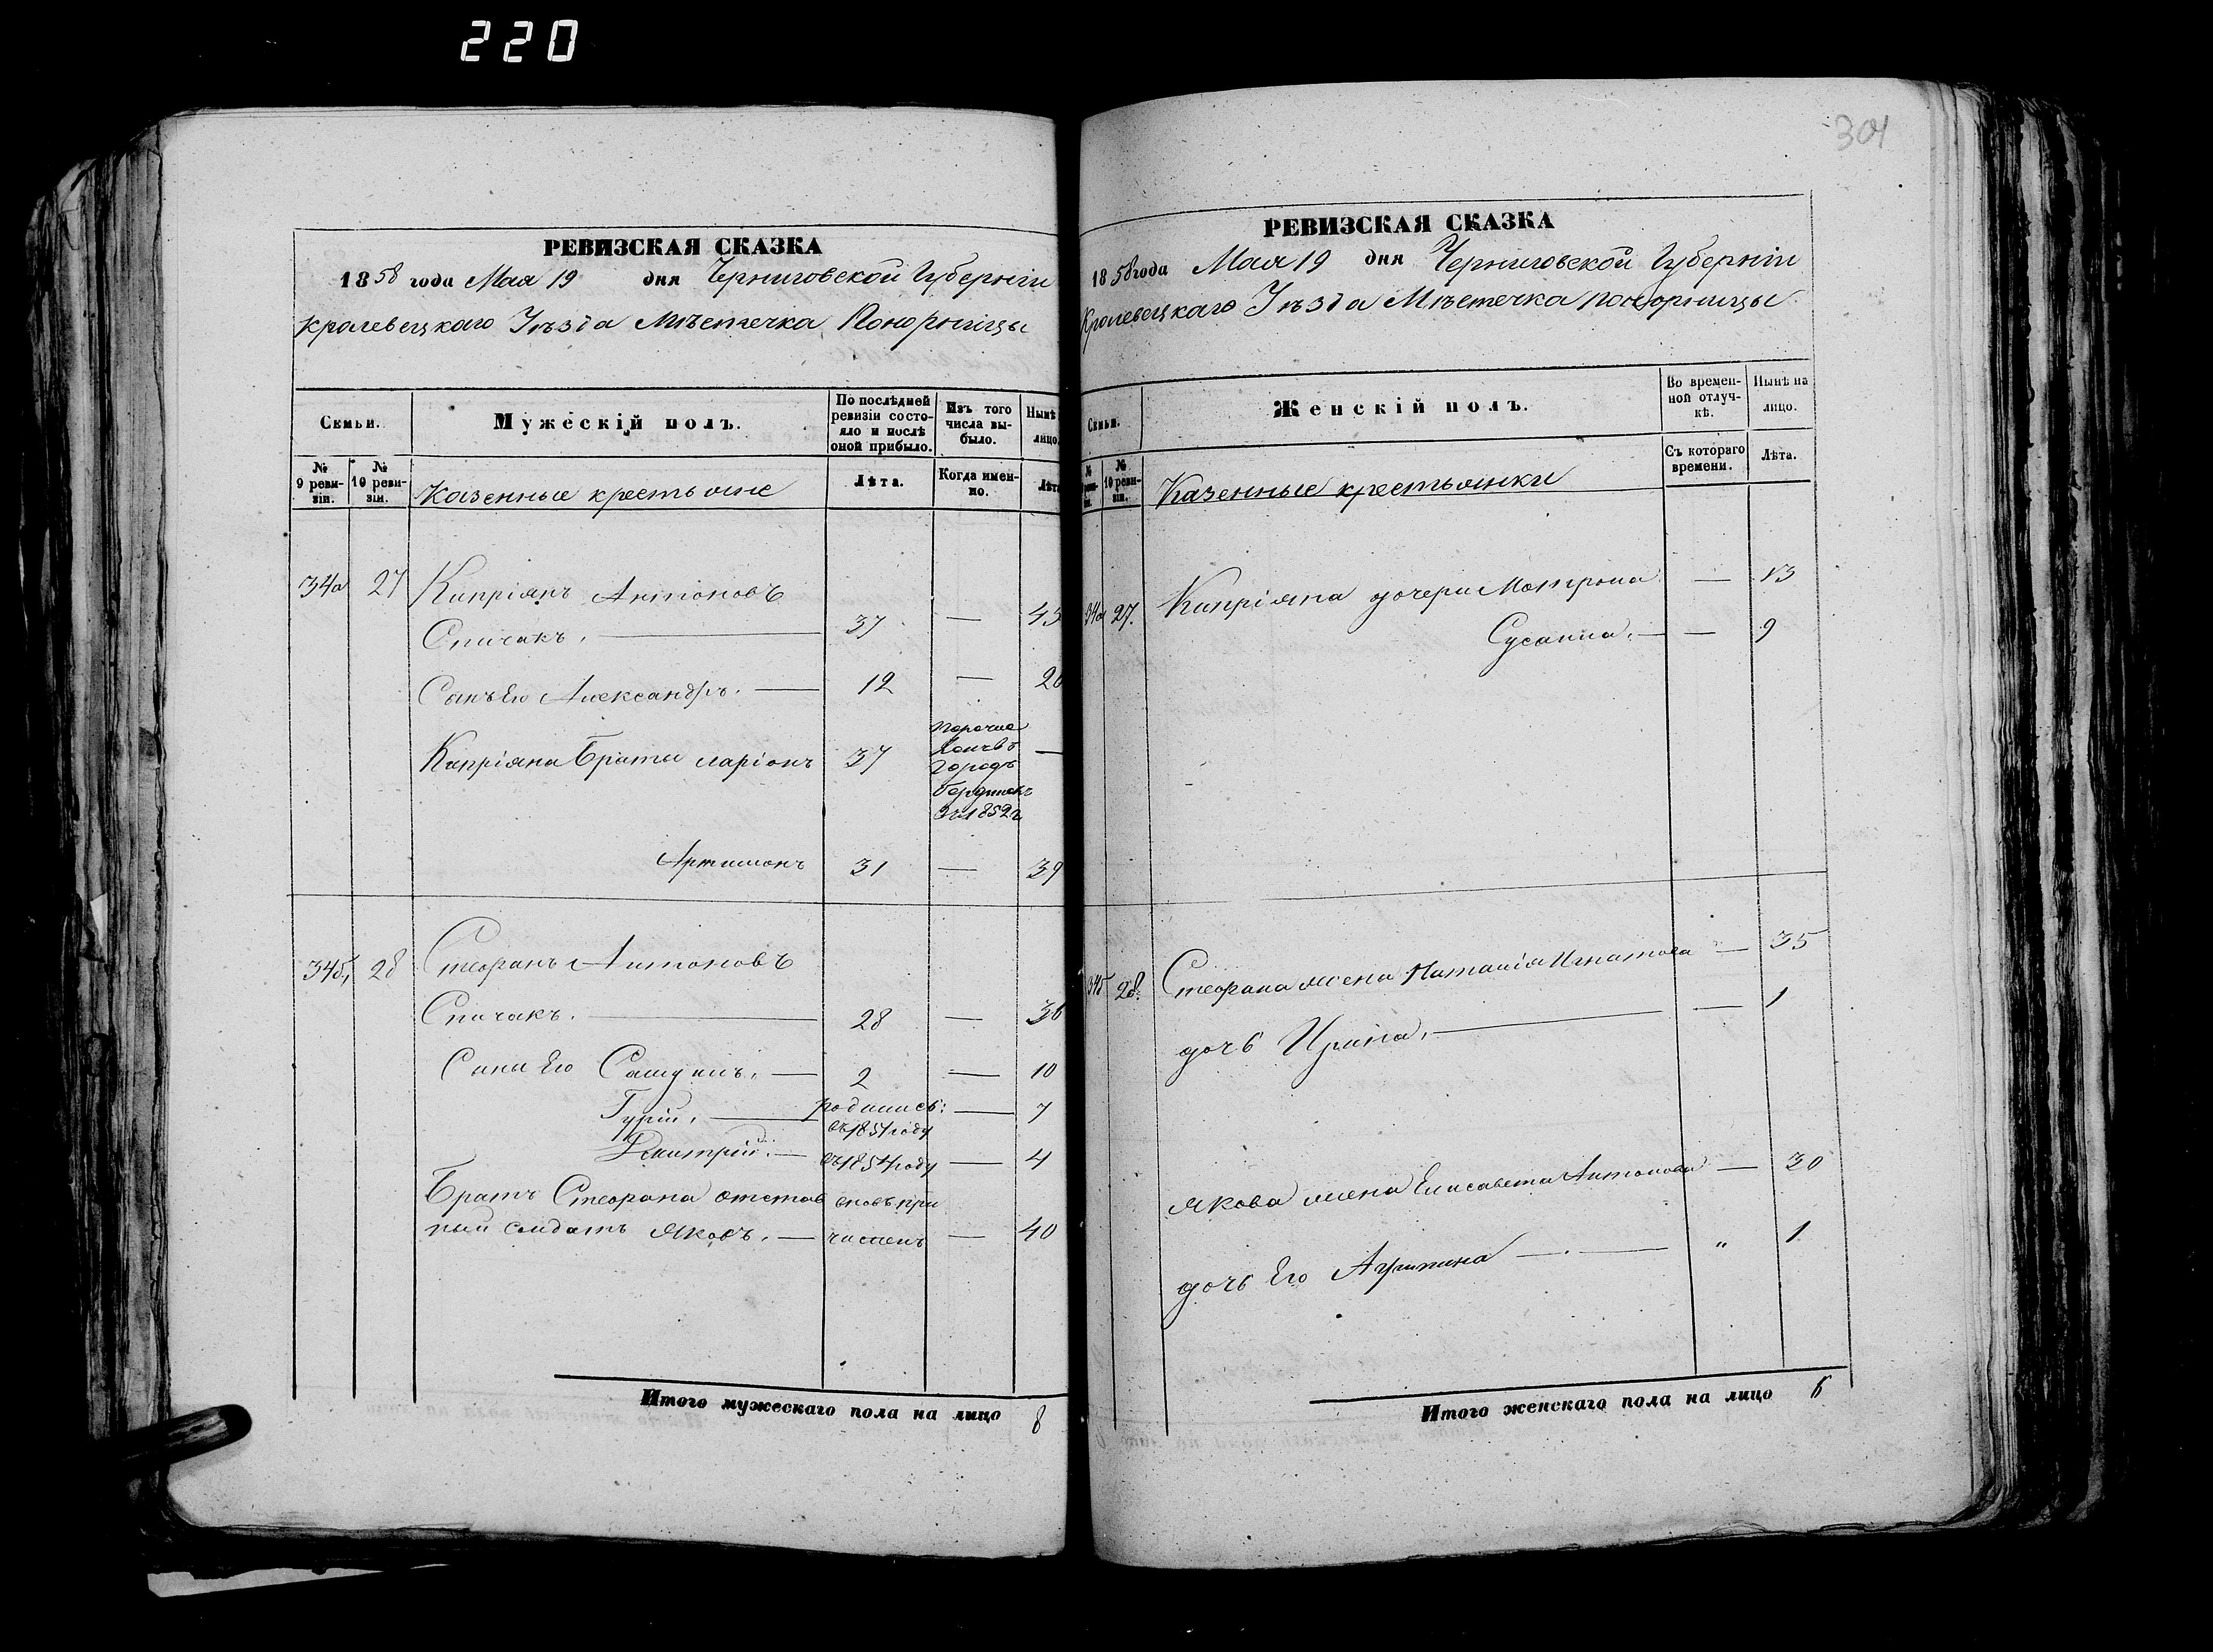 220
РЕВИЗСКАЯ СКАЗКА
1858 года Мая 19 дня Черниговской Губерніи
Кролевецкаго Уѣзда Мѣстечка Понорницы
Семьи.
Мужескій полъ.
По послѣдней ревизіи состояло и послѣ оной прибыло.
Изъ того числа выбыло.
Нынѣ лицо.
№ 9 ревизіи.
№ 10 ревизіи.
Казенные крестьяне
Лѣта.
Когда именно.
Лѣта
34а 27 Кипріянъ Антоновъ
Спичакъ. — 37 — 45
Сынъ Его Александръ. — 12 — 20
Кипріяна Братья Ларіонъ 37 —
городъ
1852
Артимонъ 31 — 39
34б, 28 Стефанъ Антоновъ
Спичакъ. — 28 — 36
Сини Его Самуилъ. — 2 — 10
Гурій. — родились: — 7
въ 1851 году
Дмитрій. — въ 1854 году — 4
Братъ Стефана отстав вновь при
ный солдатъ Яковъ. — численъ — 40
Итого мужескаго пола на лицо 8
301
РЕВИЗСКАЯ СКАЗКА
1858 года Мая 19 дня Черниговской Губерніи
Кролевецкаго Уѣзда Мѣстечка Понорницы
Семьи.
Женскій полъ.
Во временной отлучкѣ.
Нынѣ на лицо.
№ 10 ревизіи.
Казенные крестьянки
Съ котораго времени.
Лѣта.
34а 27. Кипріяна дочери Мотрона — 13
Сусанна. — — 9
34б 28. Стефана жена Наталія Игнатова — 35
дочь Ирина. — — 1
Якова жена Елисавета Антонова — 30
дочь Его Агрипина — . — " 1
Итого женскаго пола на лицо 6